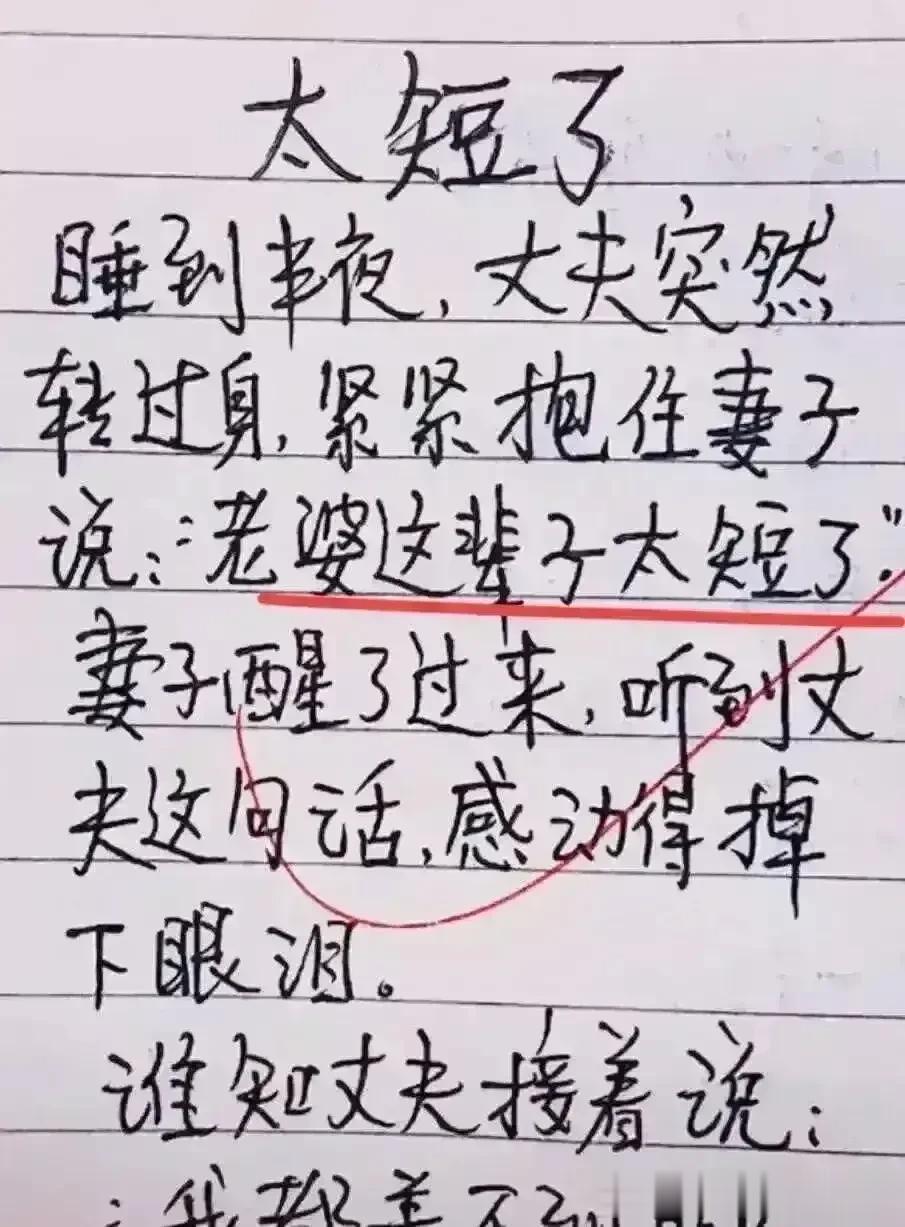 太短了
睡到半夜,丈夫突然
转过身,紧紧抱住妻子
说:“老婆这辈子太短了”.
妻子醒了过来,听到丈
夫这句话,感动得掉
下眼泪。
谁知丈夫接着说: